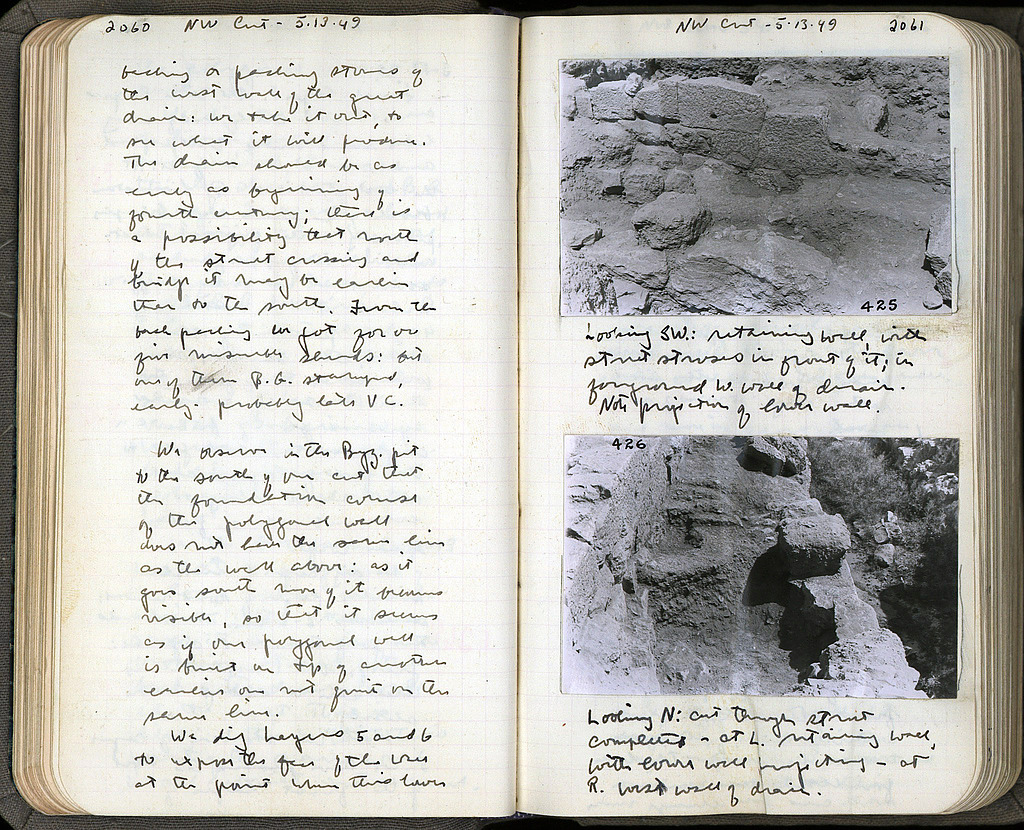 2060 NW Cut - 5.13.49
backing or packing stones of
the west wall of the great
drain: we take it out, to
see what it will produce.
The drain should be as
early as beginning of
fourth century; there is
a possibility that north
of the street crossing and
bridge it may be earlier
than to the south. From the
back packing we got four or
five miserable sherds: but
one of them B.G. stamped,
early. probably late V C.
We observe in the Byz. pit
to the south of our cut that
the foundation course
of the polygonal wall
does not have the same line
as the wall above: as it
goes south more of it becomes
visible, so that it seems
as if our polygonal wall
is built on top of another
earlier one not quite on the
same line.
We dig Layers 5 and 6
to expose the face of the
at the point where this lower
NW Cut - 5.13.49 2061
425
Looking SW.: retaining wall, with
street stroses in front of it; in
foreground W. wall of drain.
Note projection of lower wall.
426
Looking N: cut through street
completed - at L. retaining wall,
with lower wall projecting - at
R. west wall of drain.